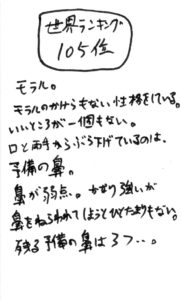 世界ランキング
105位
モラル。
モラルのかけらもない性格をしている。
いいところが一個もない。
口と両手からぶら下げているのは、
予備の鼻。
鼻が弱点。かなり強いが
鼻をねらわれてしまうとひとたまりもない。
残る予備の鼻は3つ…。